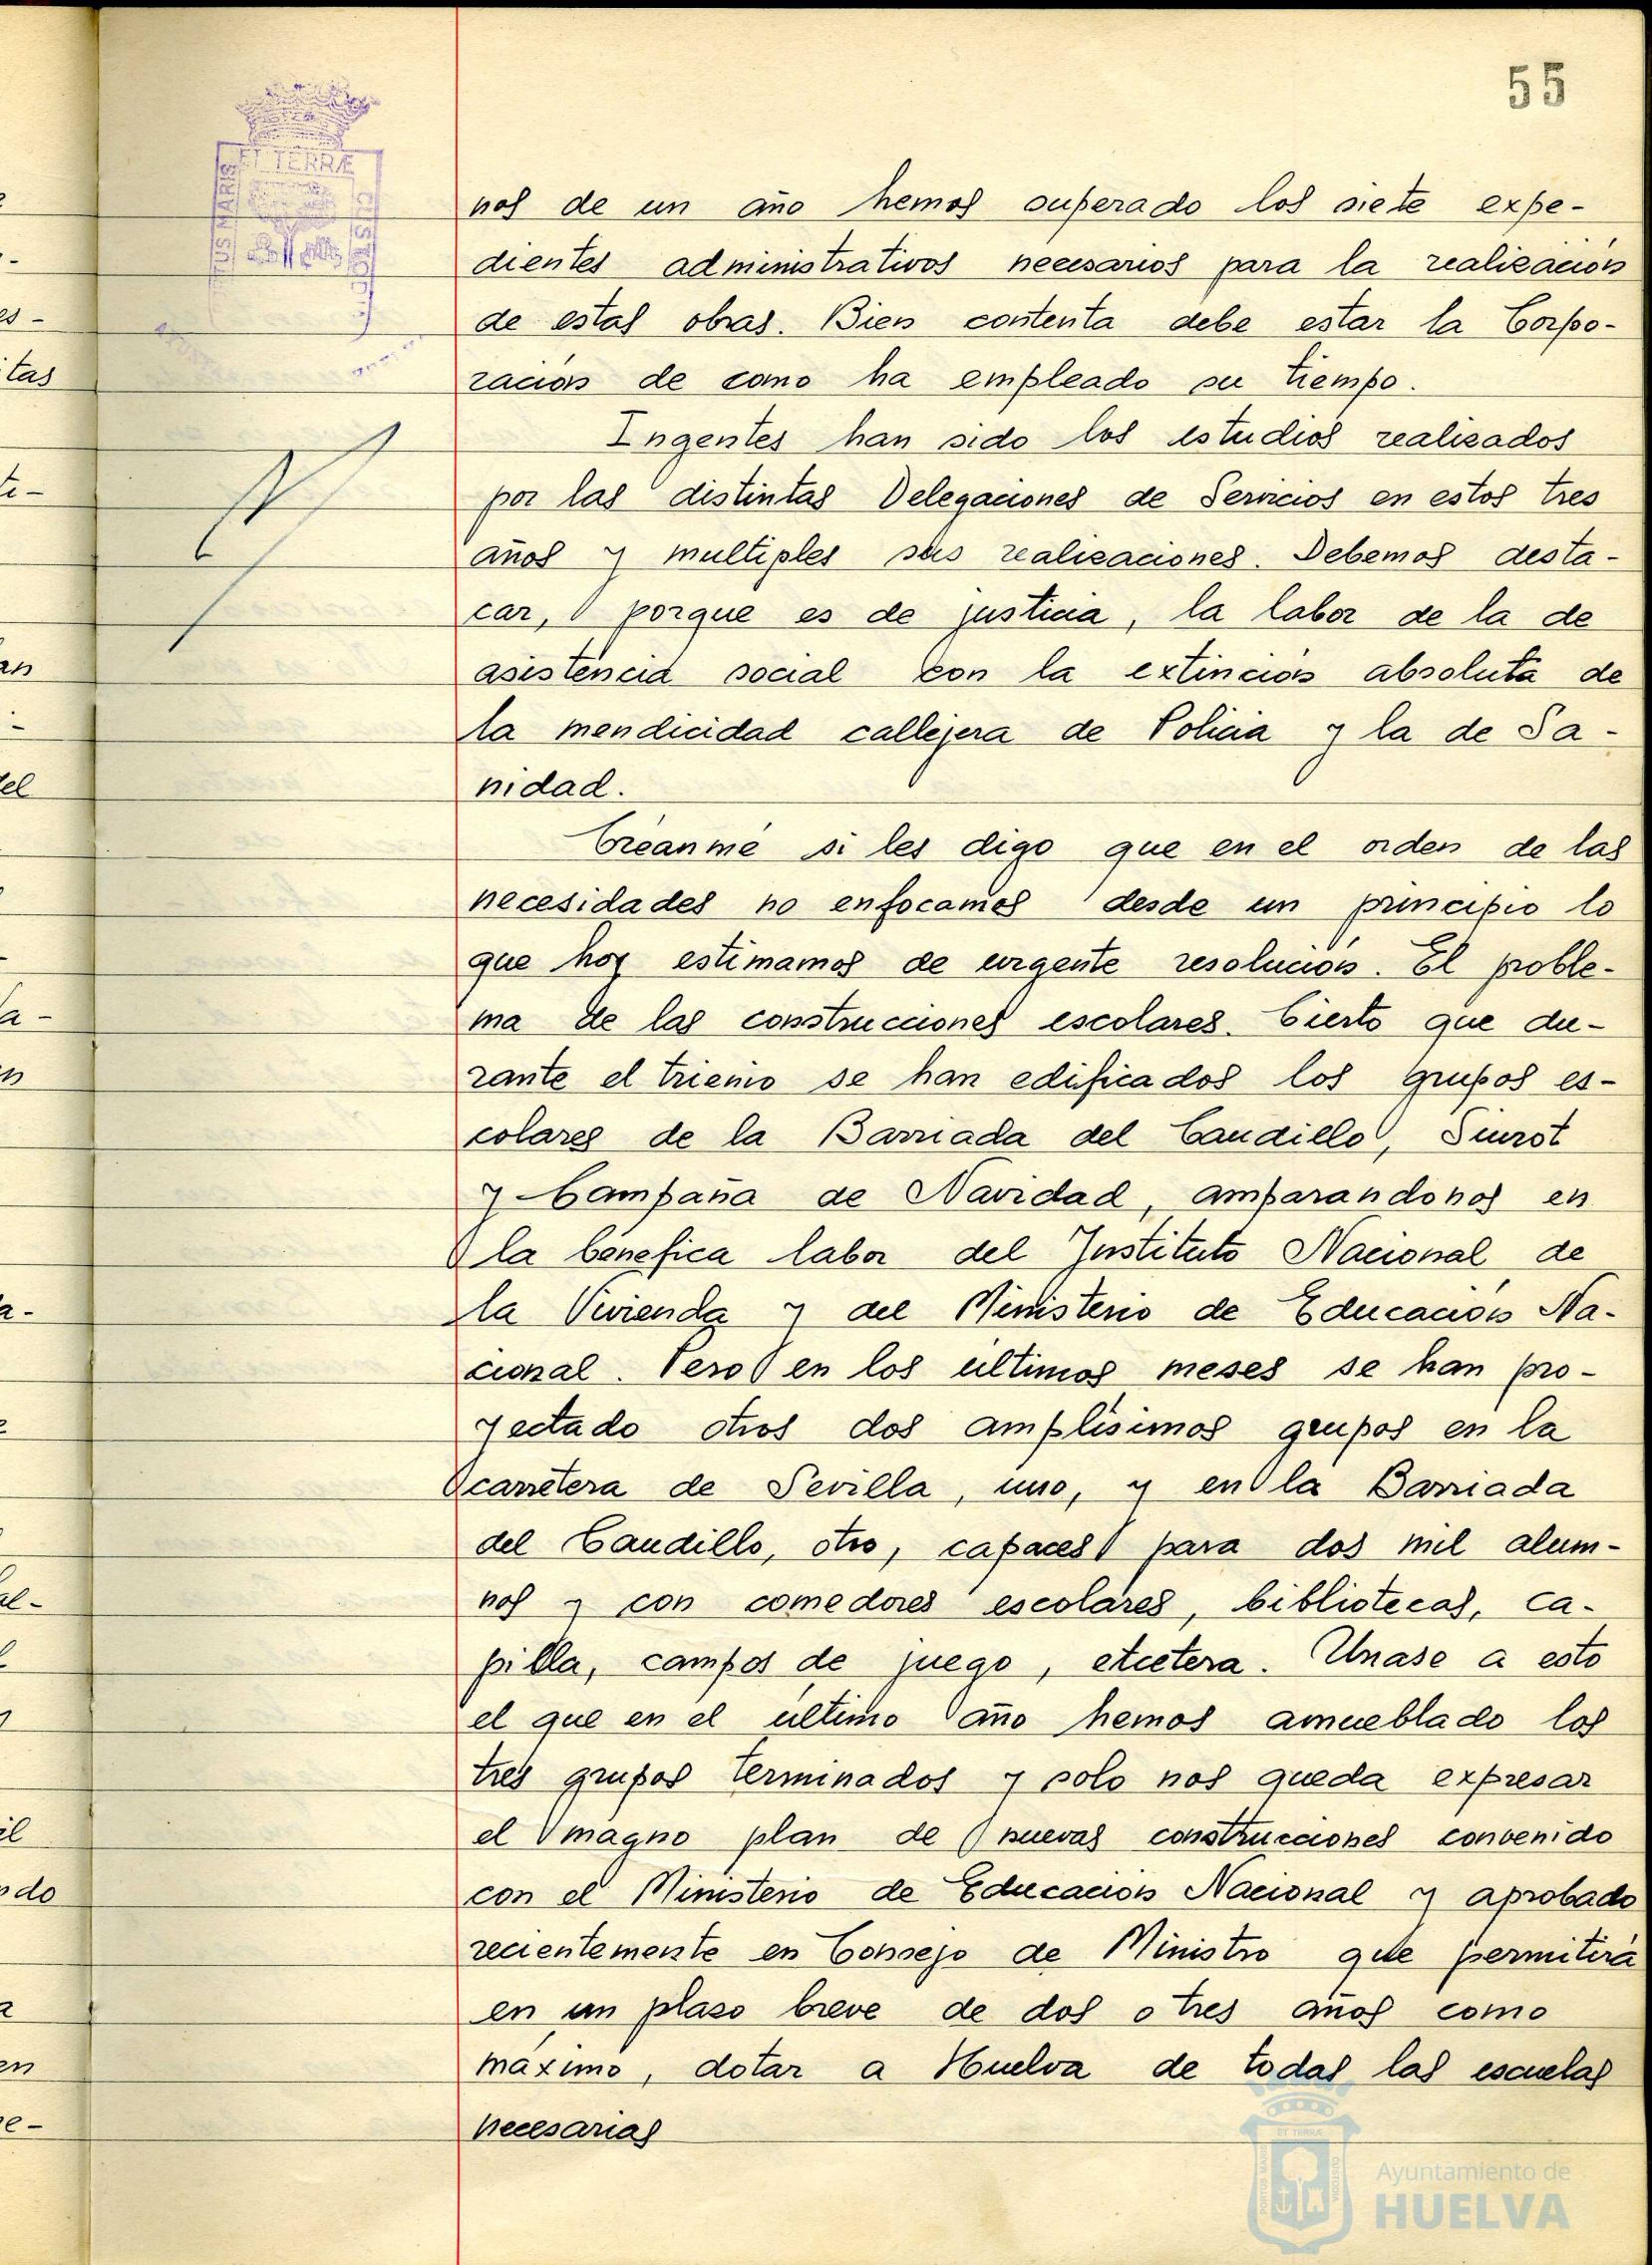 55
ET TERRÆ
TUS MARIS
CUSTODI
nos de un año hemos superado los siete expe-
dientes administrativos necesarios para la realización
de estas obras. Bien contenta debe estar la Corpo-
ración de como ha empleado su tiempo.
Ingentes han sido los estudios realizados
por las distintas Delegaciones de Servicios en estos tres
años y multiples sus realizaciones. Debemos desta-
car, porque es de justicia, la labor de la de
asistencia social con la extinción absoluta de
la mendicidad callejera de Policia y la de Sa-
nidad.
Créanme si les digo que en el orden de las
necesidades no enfocamos desde un principio lo
que hoy estimamos de urgente resolución. El proble-
ma de las construcciones escolares. Cierto que du-
rante el trienio se han edificados los grupos es-
colares de la Barriada del Caudillo, Siurot
y Campaña de Navidad, amparandonos en
la benefica labor del Instituto Nacional de
la Vivienda y del Ministerio de Educación Na-
cional. Pero en los últimos meses se han pro-
yectado otros dos amplísimos grupos en la
carretera de Sevilla, uno, y en la Barriada
del Caudillo, otro, capaces para dos mil alum-
nos y con comedores escolares, bibliotecas, ca-
pilla, campos de juego, etcetera. Unase a esto
el que en el último año hemos amueblado los
tres grupos terminados y solo nos queda expresar
el magno plan de nuevas construcciones convenido
con el Ministerio de Educación Nacional y aprobado
recientemente en Consejo de Ministro que permitirá
en un plaso breve de dos o tres años como
máximo, dotar a Huelva de todas las escuelas
necesarias
Ayuntamiento de
HUELVA